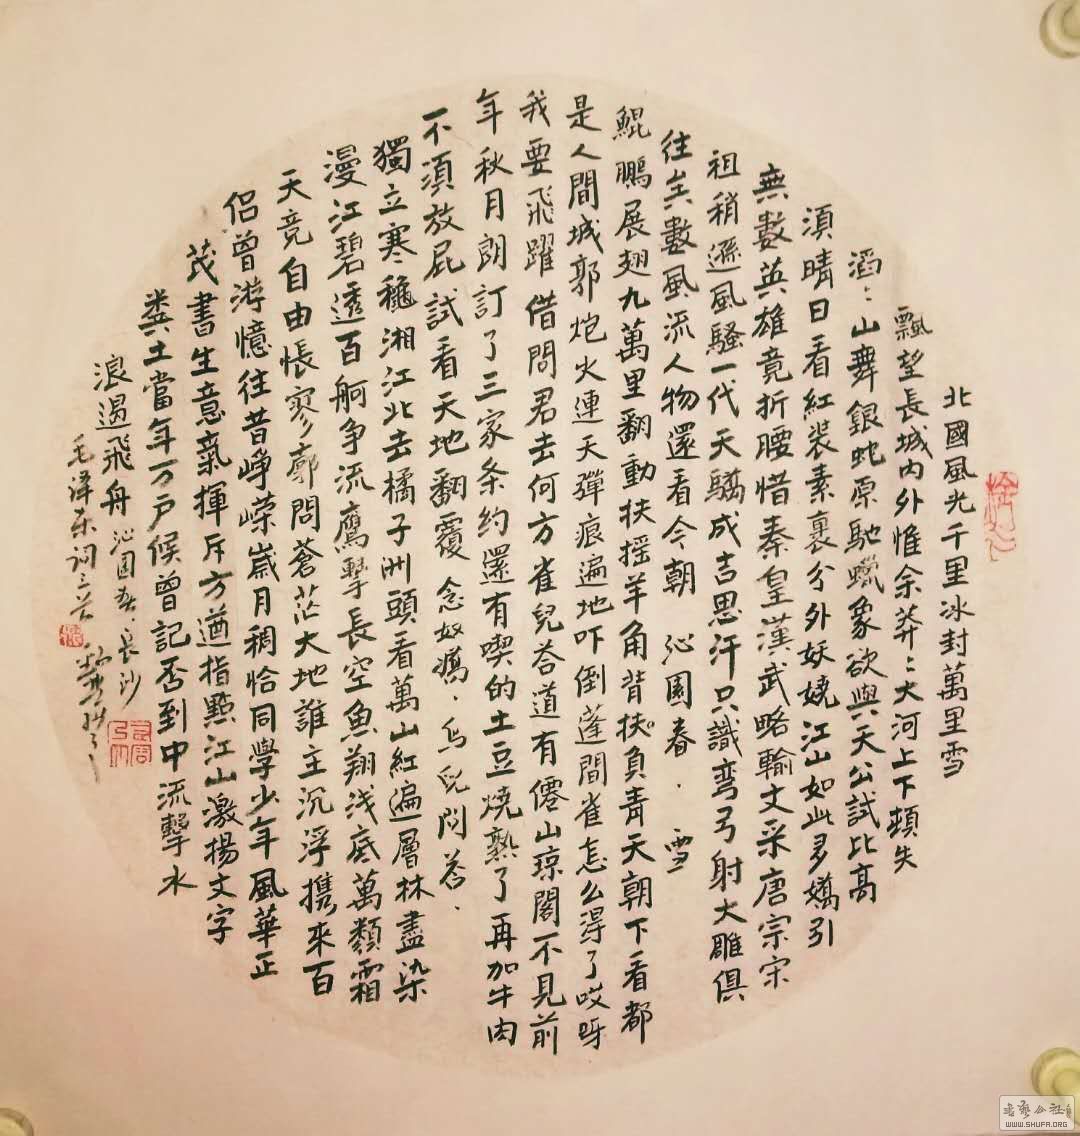 北國風光千里冰封萬里雪
飄望長城內外惟余莽〻大河上下頓失
滔〻山舞銀蛇原馳蠟象欲與天公試比高
須晴日看紅裝素裹分外妖嬈江山如此多嬌引
無數英雄竟折腰惜秦皇漢武略輸文采唐宗宋
祖稍遜風騷一代天驕成吉思汗只識彎弓射大雕俱
往矣數風流人物還看今朝 沁園春．雪
鯤鵬展翅九萬里翻動扶摇羊角背扶負青天朝下看都
是人間城郭炮火連天彈痕遍地吓倒蓬間雀怎么得了哎呀
我要飛躍借問君去何方雀兒荅道有僊山琼閣不見前
年秋月朗訂了三家条約還有喫的土豆燒熟了再加牛肉
不須放屁試看天地翻覆念奴嬌．鳥兒問荅．
獨立寒穐湘江北去橘子洲頭看萬山紅遍層林盡染
漫江碧透百舸争流鷹擊長空魚翔浅底萬類霜
天竟自由悵寥廓問蒼茫大地誰主沉浮攜來百
侣曾游憶往昔崢嶸嵗月稠恰同學少年風華正
茂書生意氣揮斥方遒指點江山激揚文字
粪土當年万户候曾記否到中流擊水
浪遏飛舟 沁園春．長沙
毛澤東詞三首
书艺公社
WWW.SHUFA.ORG